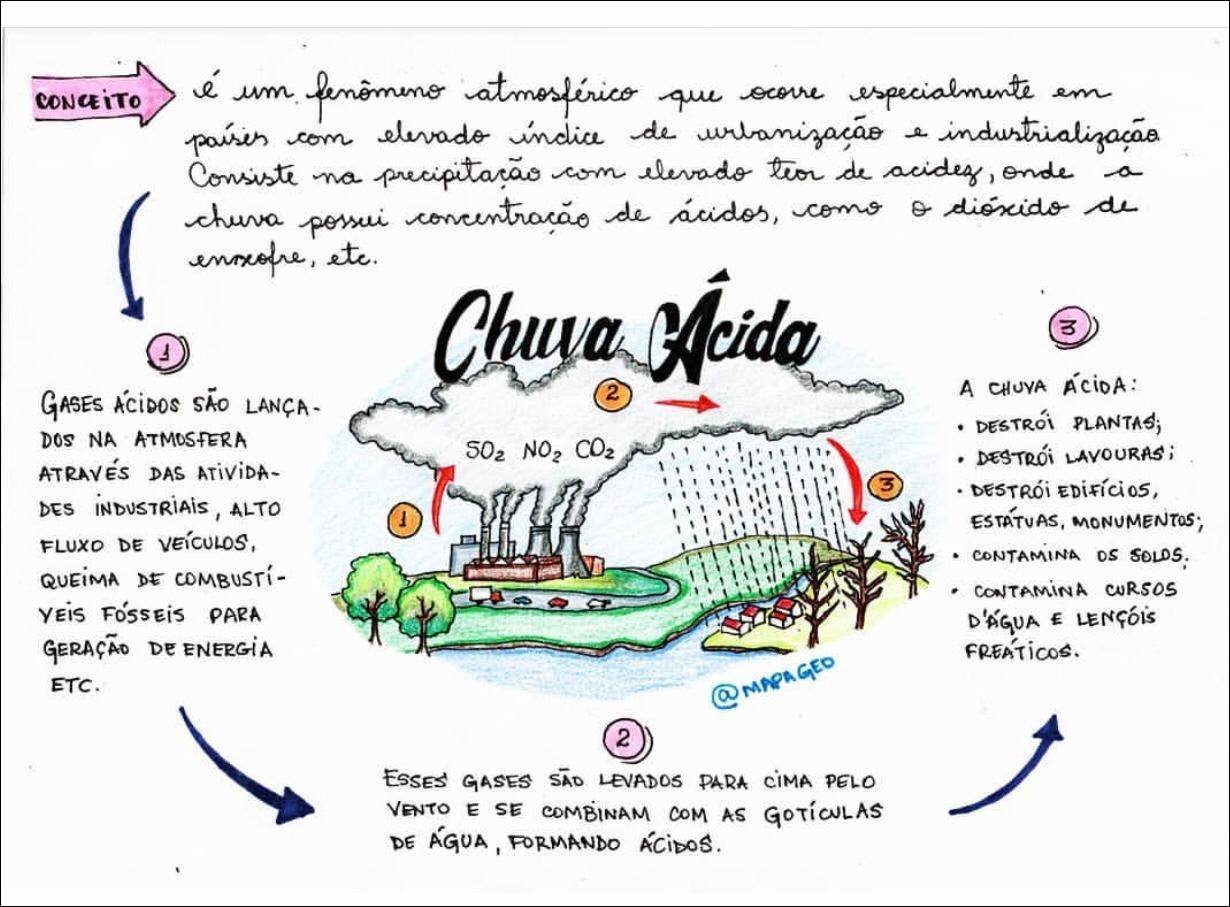 CONCEITO
é um fenômeno atmosférico que ocorre especialmente em
países com elevado índice de urbanização e industrialização
Consiste na precipitação com elevado teor de acidez, onde a
chuva possui concentração de ácidos, como o dióxido de
enxofre, etc.
Chuva Ácida
1
GASES ÁCIDOS SÃO LANÇA-
DOS NA ATMOSFERA
ATRAVÉS DAS ATIVIDA-
DES INDUSTRIAIS, ALTO
FLUXO DE VEÍCULOS,
QUEIMA DE COMBUSTÍ-
VEIS FÓSSEIS PARA
GERAÇÃO DE ENERGIA
ETC.
2
SO2 NO2 CO2
1
3
@MAPAGEO
2
ESSES GASES SÃO LEVADOS PARA CIMA PELO
VENTO E SE COMBINAM COM AS GOTÍCULAS
DE ÁGUA, FORMANDO ÁCIDOS.
3
A CHUVA ÁCIDA:
• DESTRÓI PLANTAS;
• DESTRÓI LAVOURAS;
• DESTRÓI EDIFÍCIOS,
ESTÁTUAS, MONUMENTOS;
• CONTAMINA OS SOLOS;
• CONTAMINA CURSOS
D'ÁGUA E LENÇÓIS
FREÁTICOS.